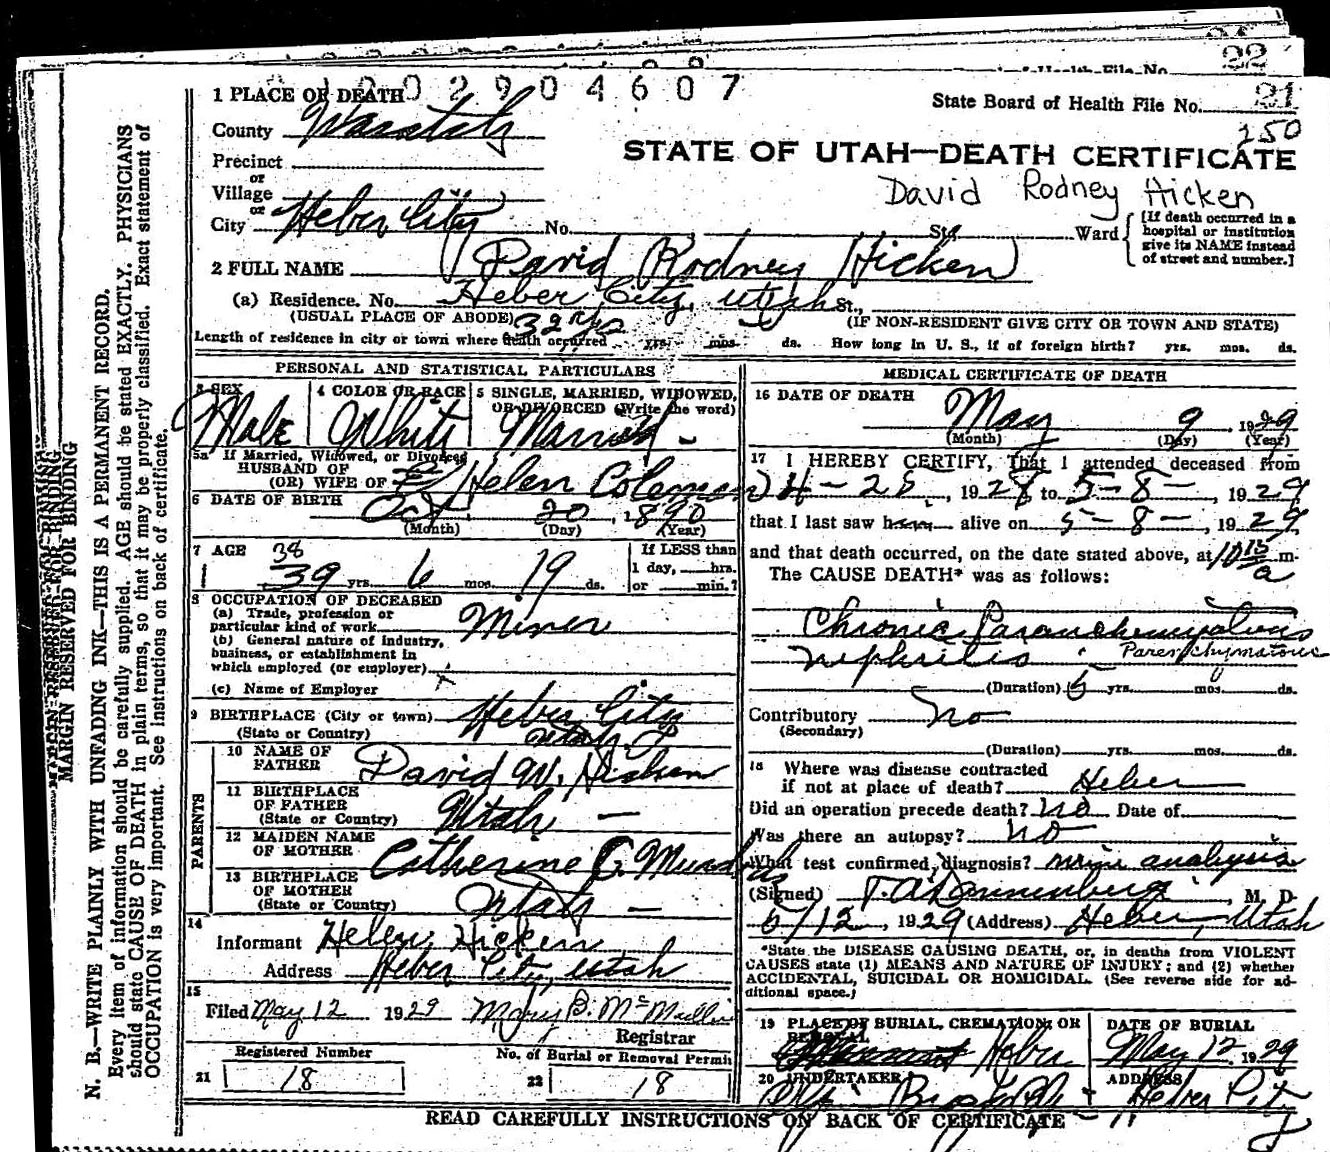 22
Health File No.
1202904607
1 PLACE OF DEATH
State Board of Health File No. 21
250
County Wasatch
STATE OF UTAH—DEATH CERTIFICATE
Precinct
or
Village
David Rodney Hicken
or
City Heber City No. St. Ward
[If death occurred in a hospital or institution give its NAME instead of street and number.]
2 FULL NAME David Rodney Hicken
(a) Residence. No. Heber City, Utah St.,
(USUAL PLACE OF ABODE) (IF NON-RESIDENT GIVE CITY OR TOWN AND STATE)
32 yrs
Length of residence in city or town where death occurred yrs. mos. ds. How long in U. S., if of foreign birth? yrs. mos. ds.
PERSONAL AND STATISTICAL PARTICULARS
3 SEX
Male
4 COLOR OR RACE
White
5 SINGLE, MARRIED, WIDOWED, OR DIVORCED (Write the word)
Married -
5a If Married, Widowed, or Divorced
HUSBAND OF
(OR) WIFE OF Helen Coleman
6 DATE OF BIRTH Oct 20, 1890
(Month) (Day) (Year)
7 AGE
38
39 yrs. 6 mos. 19 ds.
If LESS than
1 day, hrs.
or min.?
8 OCCUPATION OF DECEASED
(a) Trade, profession or
particular kind of work Miner
(b) General nature of industry,
business, or establishment in
which employed (or employer)
(c) Name of Employer
9 BIRTHPLACE (City or town) Heber City
(State or Country) Utah
PARENTS
10 NAME OF
FATHER David W. Hicken
11 BIRTHPLACE
OF FATHER
(State or Country) Utah —
12 MAIDEN NAME
OF MOTHER Catherine
13 BIRTHPLACE
OF MOTHER
(State or Country) Utah —
14
Informant Helen Hicken
Address Heber City, Utah
15
Filed May 12 1929 Mary B. McMullin
Registrar
Registered Number No. of Burial or Removal Permit
21 18 22 18
MEDICAL CERTIFICATE OF DEATH
16 DATE OF DEATH
May 9, 1929
(Month) (Day) (Year)
17 I HEREBY CERTIFY, That I attended deceased from
4-25, 1928 to 5-8-, 1929
that I last saw him alive on 5-8-, 1929
and that death occurred, on the date stated above, at 10 15 a m.
The CAUSE DEATH* was as follows:
Chronic Paranchemyatous
nephritis Parenchymatous
(Duration) 5 yrs. mos. ds.
Contributory no
(Secondary)
(Duration) yrs. mos. ds.
18 Where was disease contracted
if not at place of death? Heber
Did an operation precede death? no Date of
Was there an autopsy? no
What test confirmed diagnosis? urine analysis
(Signed) T. A. Dannenberg, M. D.
5/12, 1929 (Address) Heber, Utah
*State the DISEASE CAUSING DEATH, or, in deaths from VIOLENT
CAUSES state (1) MEANS AND NATURE OF INJURY; and (2) whether
ACCIDENTAL, SUICIDAL OR HOMICIDAL. (See reverse side for ad-
ditional space.)
19 PLACE OF BURIAL, CREMATION, OR
REMOVAL
Heber
DATE OF BURIAL
May 12 1929
20 UNDERTAKER
ADDRESS
Heber City
READ CAREFULLY INSTRUCTIONS ON BACK OF CERTIFICATE
MARGIN RESERVED FOR BINDING
N. B.—WRITE PLAINLY WITH UNFADING INK—THIS IS A PERMANENT RECORD.
Every item of information should be carefully supplied. AGE should be stated EXACTLY. PHYSICIANS
should state CAUSE OF DEATH in plain terms, so that it may be properly classified. Exact statement of
OCCUPATION is very important. See instructions on back of certificate.